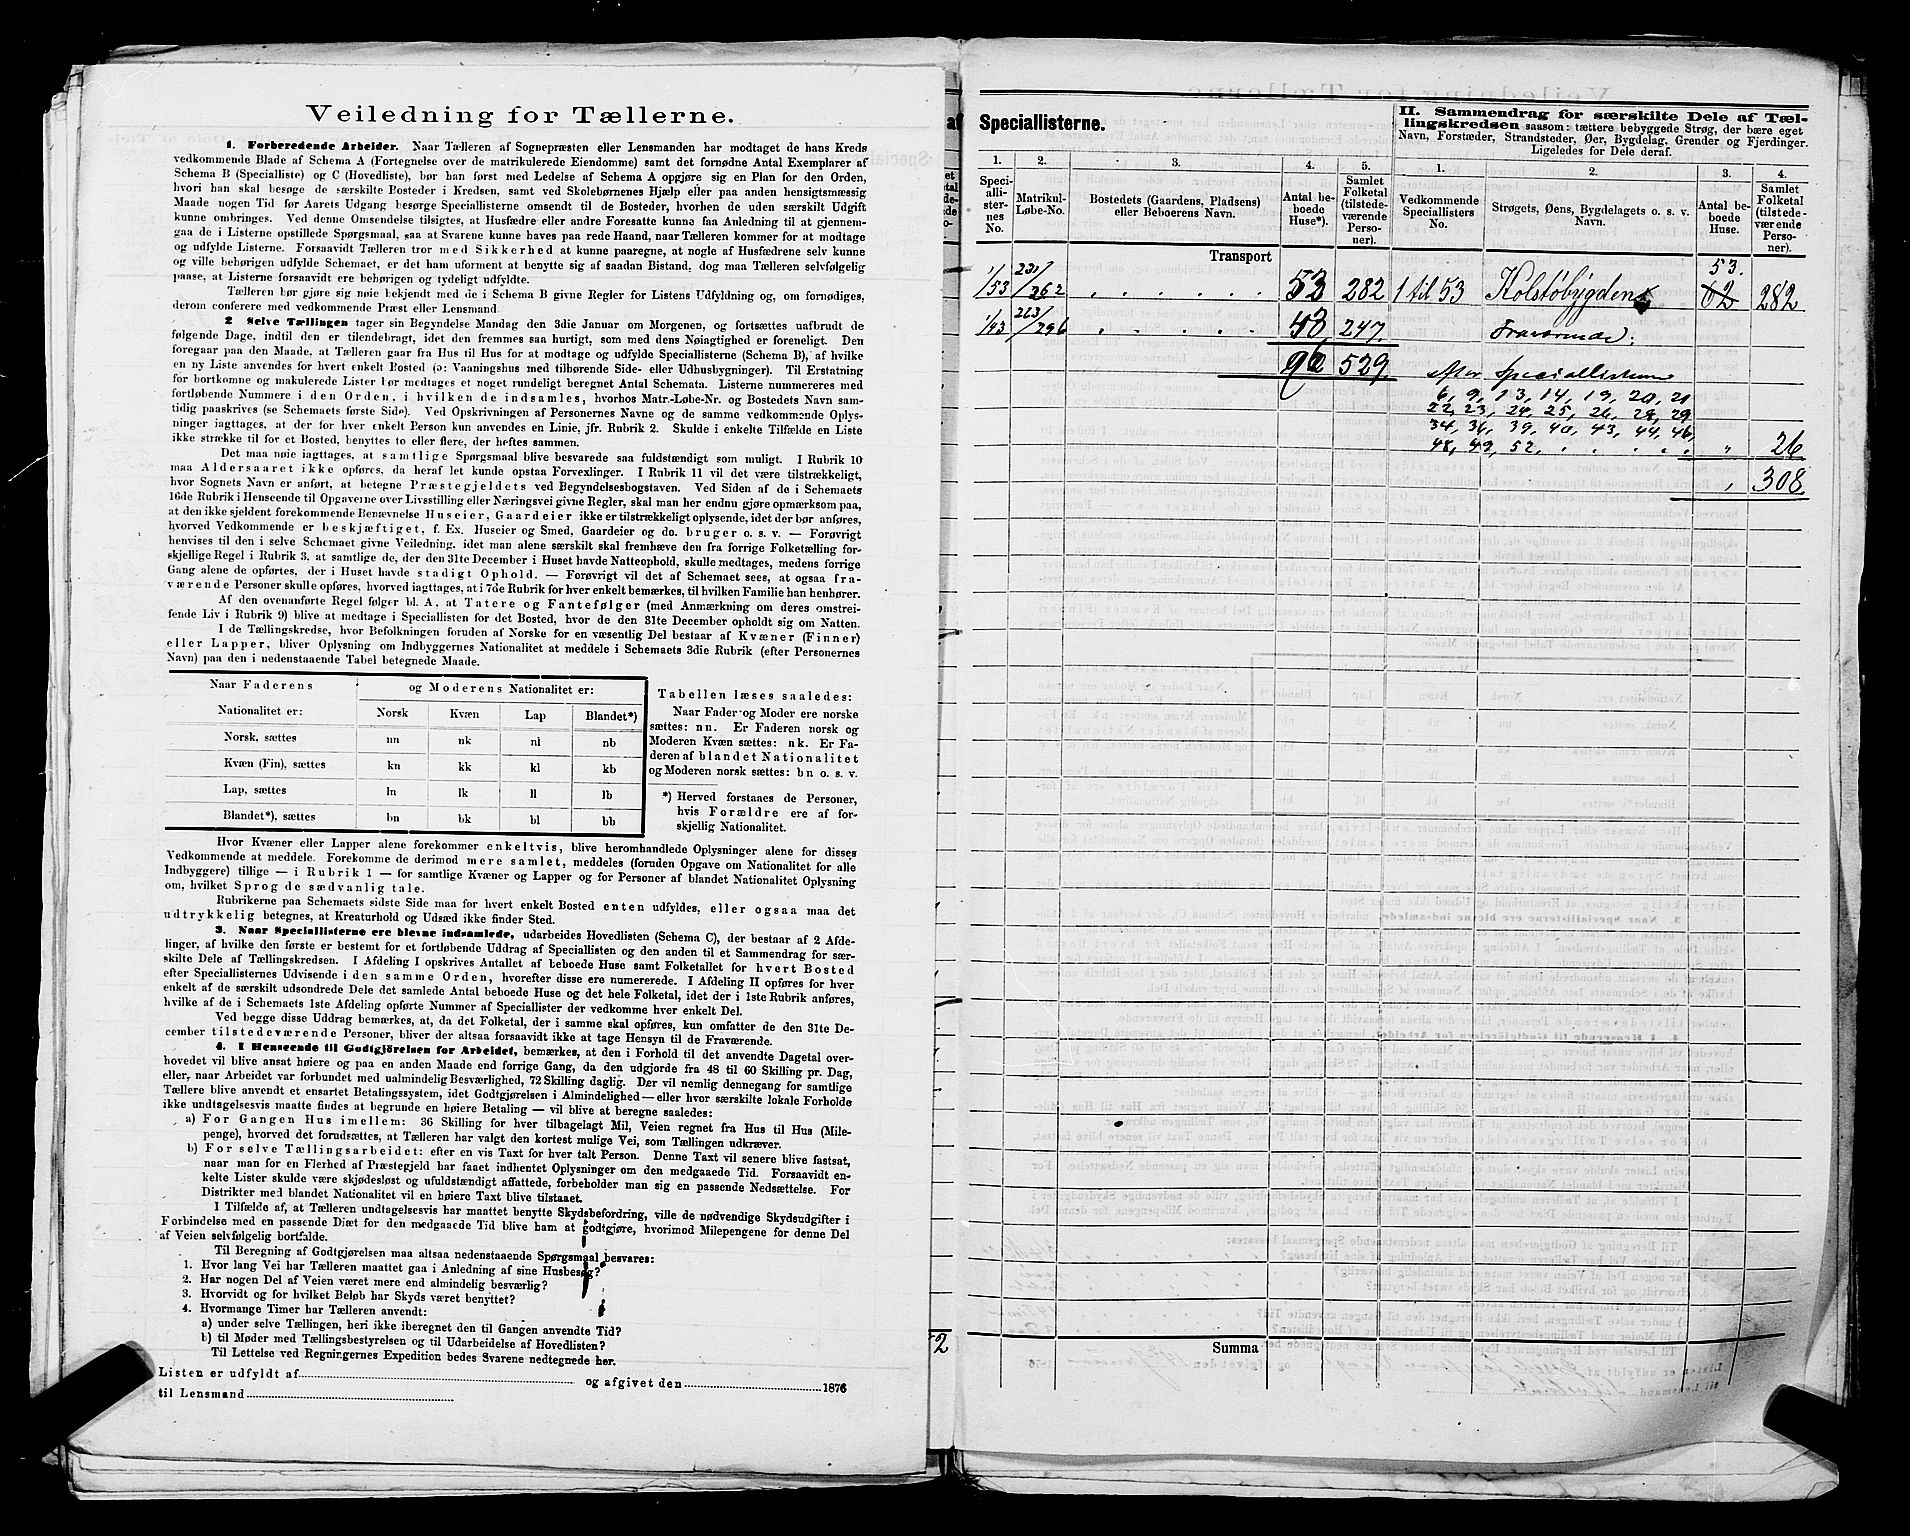 Veiledning for Tællerne.
1. Forberedende Arbeider. Naar Tælleren af Sognepræsten eller Lensmanden har modtaget de hans Kreds
vedkommende Blade af Schema A (Fortegnelse over de matrikulerede Eiendomme) samt det fornødne Antal Exemplarer af
Schema B (Specialliste) og C (Hovedliste), bør han først med Ledelse af Schema A opgjøre sig en Plan for den Orden,
hvori han skal besøge de særskilte Bosteder i Kredsen, samt ved Skolebørnenes Hjælp eller paa anden hensigtsmæssig
Maade nogen Tid før Aarets Udgang besørge Speciallisterne omsendt til de Bosteder, hvorhen de uden særskilt Udgift
kunne ombringes. Ved denne Omsendelse tilsigtes, at Husfædre eller andre Foresatte kunne faa Anledning til at gjennem-
gaa de i Listerne opstillede Spørgsmaal, saa at Svarene kunne haves paa rede Haand, naar Tælleren kommer for at modtage
og udfylde Listerne. Forsaavidt Tælleren tror med Sikkerhed at kunne paaregne, at nogle af Husfædrene selv kunne
og ville behørigen udfylde Schemaet, er det ham uforment at benytte sig af saadan Bistand, dog maa Tælleren selvfølgelig
paase, at Listerne forsaavidt ere behørigen og tydeligt udfyldte.
Tælleren bør gjøre sig nøie bekjendt med de i Schema B givne Regler for Listens Udfyldning og, om fornødiges,
derom conferere med vedkommende Præst eller Lensmand.
2 Selve Tællingen tager sin Begyndelse Mandag den 3die Januar om Morgenen, og fortsættes uafbrudt de
følgende Dage, indtil den er tilendebragt, idet den fremmes saa hurtigt, som med dens Nøiagtighed er foreneligt. Den
foregaar paa den Maade, at Tælleren gaar fra Hus til Hus for at modtage og udfylde Speciallisterne (Schema B), af hvilke
en ny Liste anvendes for hvert enkelt Bosted (ɔ: Vaaningshus med tilhørende Side- eller Udhusbygninger). Til Erstatning
for bortkomne og makulerede Lister er medtages et noget rundeligt beregnet Antal Schemata. Listerne nummereres med
fortløbende Nummere i den Orden, i hvilken de indsamles, hvorhos Matr.-Løbe-Nr. og Bostedets Navn sam-
tidig paaskrives (se Schemaets første Side). Ved Opskrivningen af Personernes Navne og de samme vedkommende Oplys-
ninger iagttages, at der for hver enkelt Person kun anvendes en Linie, jfr. Rubrik 2. Skulde i enkelte Tilfælde en Liste
ikke strække til for et Bosted, benyttes to eller flere, der heftes sammen.
Det maa nøie iagttages, at samtlige Spørgsmaal blive besvarede saa fuldstændigt som muligt. I Rubrik 10
maa Aldersaaret ikke opføres, da heraf let kunde opstaa Forvexlinger. I Rubrik 11 vil det være tilstrækkeligt,
hvor Sognets Navn er anført, at betegne Præstegjeldets ved Begyndelsesbogstaven. Ved Siden af de i Schemaets
16de Rubrik i Henseende til Opgaverne over Livsstilling eller Næringsvei givne Regler, skal man her endnu gjøre opmærksom paa,
at den ikke sjeldent forekommende Benævnelse Huseier, Gaardeier ikke er tilstrækkeligt oplysende, idet der bør anføres,
hvorved Vedkommende er beskjæftiget, f. Ex. Huseier og Smed, Gaardeier og do. bruger o. s. v. — Forøvrigt
henvises til den i selve Schemaet givne Veiledning, idet man alene særskilt skal fremhæve den fra forrige Folketælling for-
skjellige Regel i Rubrik 3, at samtlige de, der den 31te December i Huset havde Natteophold, skulle medtages, medens forrige
Gang alene de opførtes, der i Huset havde stadigt Ophold. — Forøvrigt vil det af Schemaet sees, at ogsaa fra-
værende Personer skulle opføres, hvorved iagttages, at i 7de Rubrik for hver enkelt bemærkes, til hvilken Familie han henhører.
Af den ovenanførte Regel følger bl. A. at Tatere og Fantefølger (med Anmærkning om deres omstrei-
fende Liv i Rubrik 9) blive at medtage i Speciallisten for det Bosted, hvor de den 31te December opholdt sig om Natten.
I de Tællingskredse, hvor Befolkningen foruden af Norske for en væsentlig Del bestaar af Kvæner (Finner)
eller Lapper, bliver Oplysning om Indbyggernes Nationalitet at meddele i Schemaets 3die Rubrik (efter Personernes
Navn) paa den i nedenstaaende Tabel betegnede Maade.
Naar Faderens og Moderens Nationalitet er:
Nationalitet er: Norsk Kvæn Lap Blandet*)
Norsk, sættes nn nk nl nb
Kvæn (Fin), sættes kn kk kl kb
Lap, sættes ln lk ll lb
Blandet*), sættes bn bk bl bb
Tabellen læses saaledes:
Naar Fader og Moder ere norske
sættes: nn. Er Faderen norsk og
Moderen Kvæn sættes: nk. Er Fa-
deren af blandet Nationalitet
og Moderen norsk sættes: bn o. s. v.
*) Herved forstanes de Personer,
hvis Forældre ere af for-
skjellig Nationalitet.
Hvor Kvæner eller Lapper alene forekommer enkeltvis, blive heromhandlede Oplysninger alene for disses
Vedkommende at meddele. Forekomme de derimod mere samlet, meddeles (foruden Opgave om Nationalitet for alle
Indbyggere) tillige — i Rubrik 1 — for samtlige Kvæner og Lapper og for Personer af blandet Nationalitet Oplysning
om, hvilket Sprog de sædvanlig tale.
Rubrikerne paa Schemaets sidste Side maa for hvert enkelt Bosted enten udfyldes, eller ogsaa maa det
udtrykkelig betegnes, at Kreaturhold og Udsæd ikke finder Sted.
3. Naar Speciallisterne ere blevne indsamlede, udarbeides Hovedlisten (Schema C), der bestaar af 2 Afde-
linger, af hvilke den første er bestemt for et fortløbende Uddrag af Speciallisten og den anden til et Sammendrag for sær-
skilte Dele af Tællingskredsen. I Afdeling I opskrives Antallet af beboede Huse samt Folketallet for hvert Bosted
efter Speciallisternes Udvisende i den samme Orden, hvorefter disse ere numererede. I Afdeling II opføres for hver
enkelt af de særskilt udsondrede Dele det samlede Antal beboede Huse og det hele Folketal, idet der i 1ste Rubrik anføres,
hvilke af de i Schemaets 1ste Afdeling opførte Nummer af Speciallister der vedkomme hver enkelt Del.
Ved begge disse Uddrag bemærkes, at, da det Folketal, der i samme skal opføres, kun omfatter de den 31te De-
cember tilstedeværende Personer, bliver der altsaa forsaavidt ikke at tage Hensyn til de Fraværende.
4. I Henseende til Godtgjörelsen for Arbeidet, bemærkes, at den i Forhold til det anvendte Dagetal over-
hovedet vil blive ansat høiere og paa en anden Maade end forrige Gang, da den udgjorde fra 48 til 60 Skilling pr. Dag,
eller, naar Arbeidet var forbundet med ualmindelig Besværlighed, 72 Skilling daglig. Der vil nemlig dennegang for samtlige
Tællere blive anvendt et ensartet Betalingssystem, idet Godtgjørelsen i Almindelighed — eller hvor særskilte lokale Forholde
ikke undtagelsesvis maatte findes at begrunde en høiere Betaling — vil blive at beregne saaledes:
a) For Gangen Hus imellem: 36 Skilling for hver tilbagelagt Mil, Veien regnet fra Hus til Hus (Mile-
penge), hvorved det forudsættes, at Tælleren har valgt den kortest mulige Vei, som Tællingen udkræver.
b) For selve Tællingsarbeidet: efter en vis Taxt for hver talt Person. Denne Taxt vil senere blive fastsat,
naar man for en Flerhed af Præstegjeld har faaet indhentet Oplysninger om den medgaaede Tid. Forsaavidt en-
kelte Lister skulde være skjødesløst og ufuldstændigt affattede, forbeholder man sig en passende Nedsættelse. For
Distrikter med blandet Nationalitet vil en høiere Taxt blive tilstaaet.
I Tilfælde af, at Tælleren undtagelsesvis har maattet benytte Skydsbefordring, ville de nødvendige Skydsudgifter i
Forbindelse med en passende Diæt for den medgaaede Tid blive ham at godtgjøre, hvorimod Milepengene for denne Del
af Veien selvfølgelig bortfalde.
Til Beregning af Godtgjørelsen maa altsaa nedenstaaende Spørgsmaal besvares:
1. Hvor lang Vei har Tælleren maattet gaa i Anledning af sine Husbesøg?
2. Har nogen Del af Veien været mere end almindelig besværlig?
3. Hvorvidt og for hvilket Beløb har Skyds været benyttet?
4. Hvormange Timer har Tælleren anvendt:
a) under selve Tællingen, heri ikke iberegnet den til Gangen anvendte Tid?
b) til Møder med Tællingsbestyrelsen og til Udarbeidelse af Hovedlisten?
Til Lettelse ved Regningernes Expedition bedes Svarene nedtegnede her.
Listen er udfyldt af
og afgivet den 1876
til Lensmand
af Speciallisterne.
1. 2. 3. 4. 5.
Speci-
allis-
ternes
No.
Matrikul-
Løbe-No.
Bostedets (Gaardens, Pladsens)
eller Beboerens Navn.
Antal be-
boede
Huse*).
Samlet
Folketal
(tilstede-
værende
Perso-
ner).
Transport
1/53 230/262 53 282
1/43 263/296 43 247.
96 529
Summa
52
II. Sammendrag for særskilte Dele af Tæl-
lingskredsen sausom: tættere bebyggede Strøg, der bære eget
Navn, Forstæder, Strandsteder, Øer, Bygdelag, Grender og Fjerdinger.
Ligeledes for Dele deraf.
1. 2. 3. 4.
Vedkommende
Speciallisters
No.
Strøgets, Øens, Bygdelagets o. s. v.
Navn.
Antal be-
boede
Huse.
Samlet
Folketal
(tilstede-
værende
Perso-
ner).
53.
1 til 53 Kolstøbygden 62 282
Fraværende:
efter Speciallisterne
6, 9, 13, 14, 19, 20, 21
22, 23, 24, 25, 26, 28, 29
34, 36, 39, 40, 43, 44, 46,
48, 49, 52, . . . . . " 26
308.